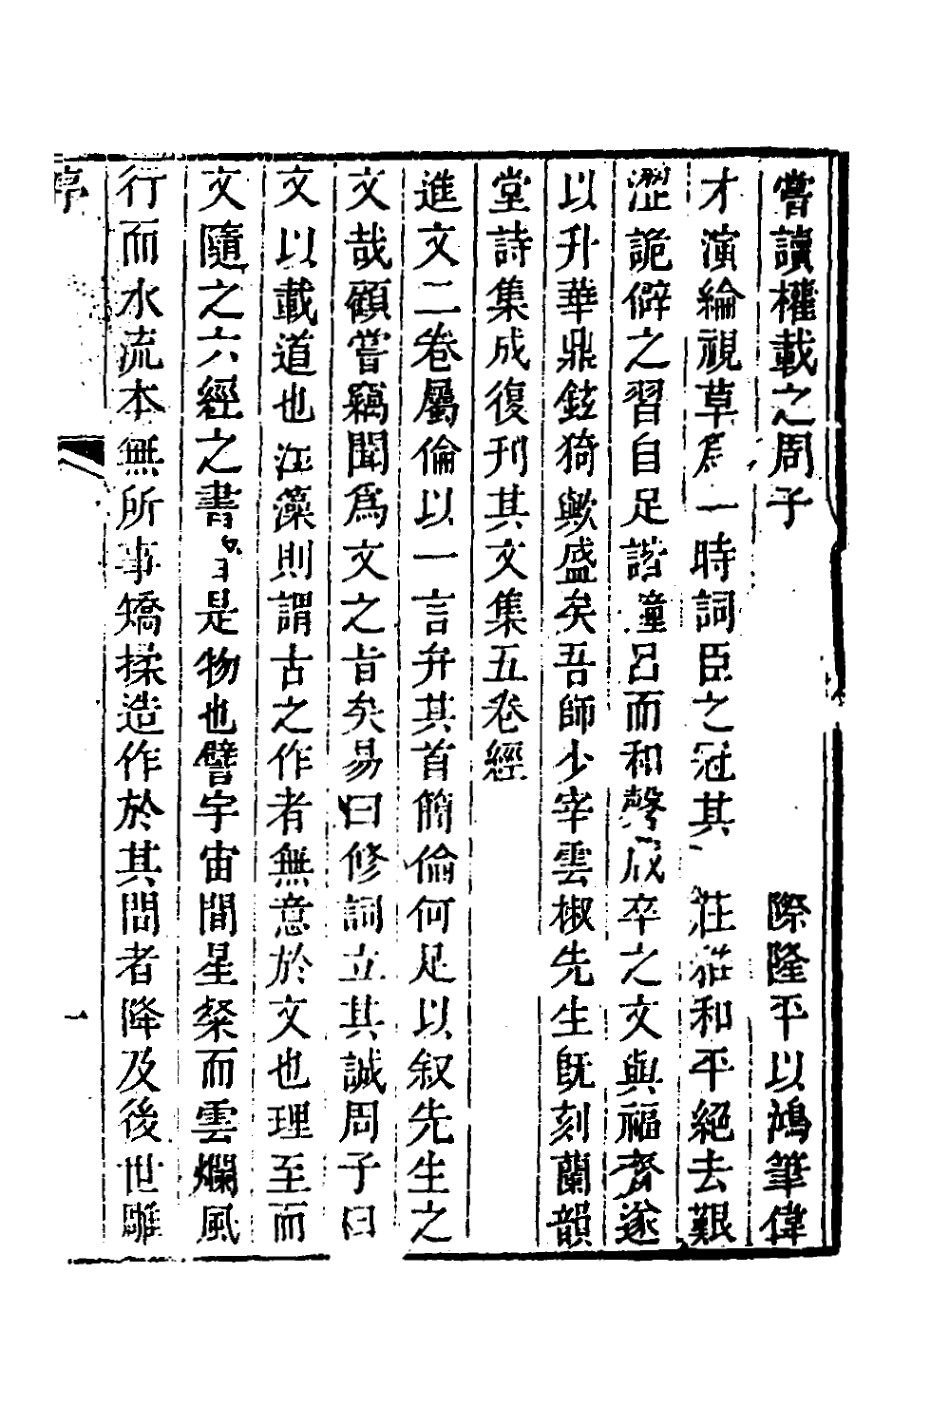 嘗讀權載之周子際隆平以鴻筆偉
才演綸視草爲一時詞臣之冠其莊和平絕去艱
澀詭僻之習自足諧潼呂而和聲成卒之文與福齊遂
以升華鼎鉉猗歟盛矣吾師少宰雲椒先生旣刻蘭韻
堂詩集成復刊其文集五卷經
進文二卷屬倫以一言弁其首簡倫何足以叙先生之
文哉顧嘗竊聞爲文之旨矣易曰修詞立其誠周子曰
文以載道也江藻則謂古之作者無意於文也理至而
文隨之六經之書皆是物也譬宇宙間星燦而雲爛風
行而水流本無所事矯揉造作於其間者降及後世雕
序
一